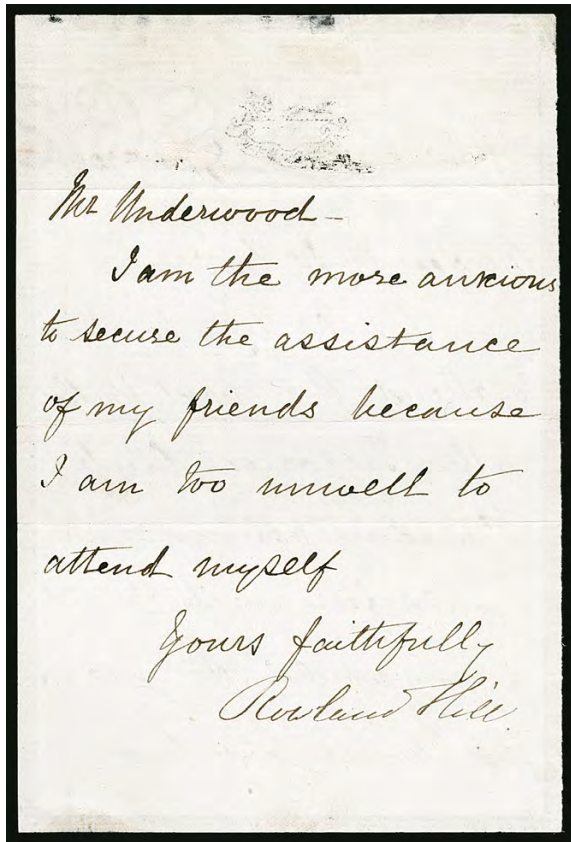 Mr Underwood –
I am the more anxious
to secure the assistance
of my friends because
I am too unwell to
attend myself
Yours faithfully
Rowland Hill